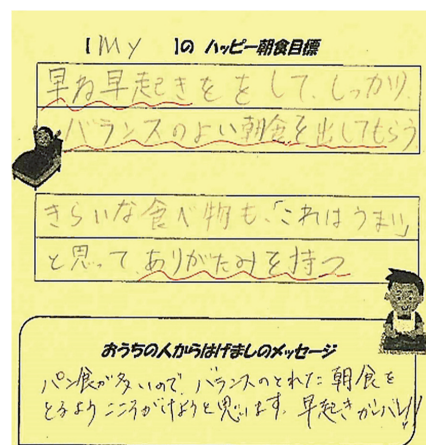 【My 】の ハッピー朝食目標
早ね早起きををして、しっかり
バランスのよい朝食を出してもらう
きらいな食べ物も、「これはうまい」
と思って、ありがたみを持つ
おうちの人からはげましのメッセージ
パン食が多いので、バランスのとれた朝食を
とるようこころがけようと思います。早起きガンバレ!!